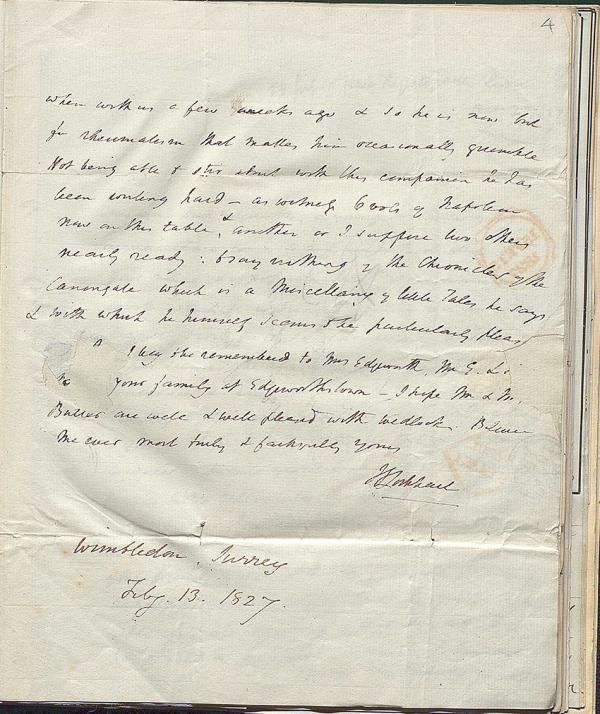 4
when with us a few weeks ago & so he is now but
for rheumatism that makes him occasionally grumble
Not being able to stir about with this companion he has
been writing hard – as witness 6 vols of Napoleon
now on this table, & another or I suppose two others
nearly ready: to say nothing of the Chronicles of the
Canongate which is a Miscellany of little Tales he says
& with which he himself seems to be particularly pleas
I beg to be remembered to Mrs Edgeworth, Mr E. &
your family at Edgeworthstown – I hope Mr & Mrs
Butler are well & well pleased with wedlock. Believe
me ever most truly & faithfully yours
JGLockhart
Wimbledon, Surrey
Feby. 13. 1827.